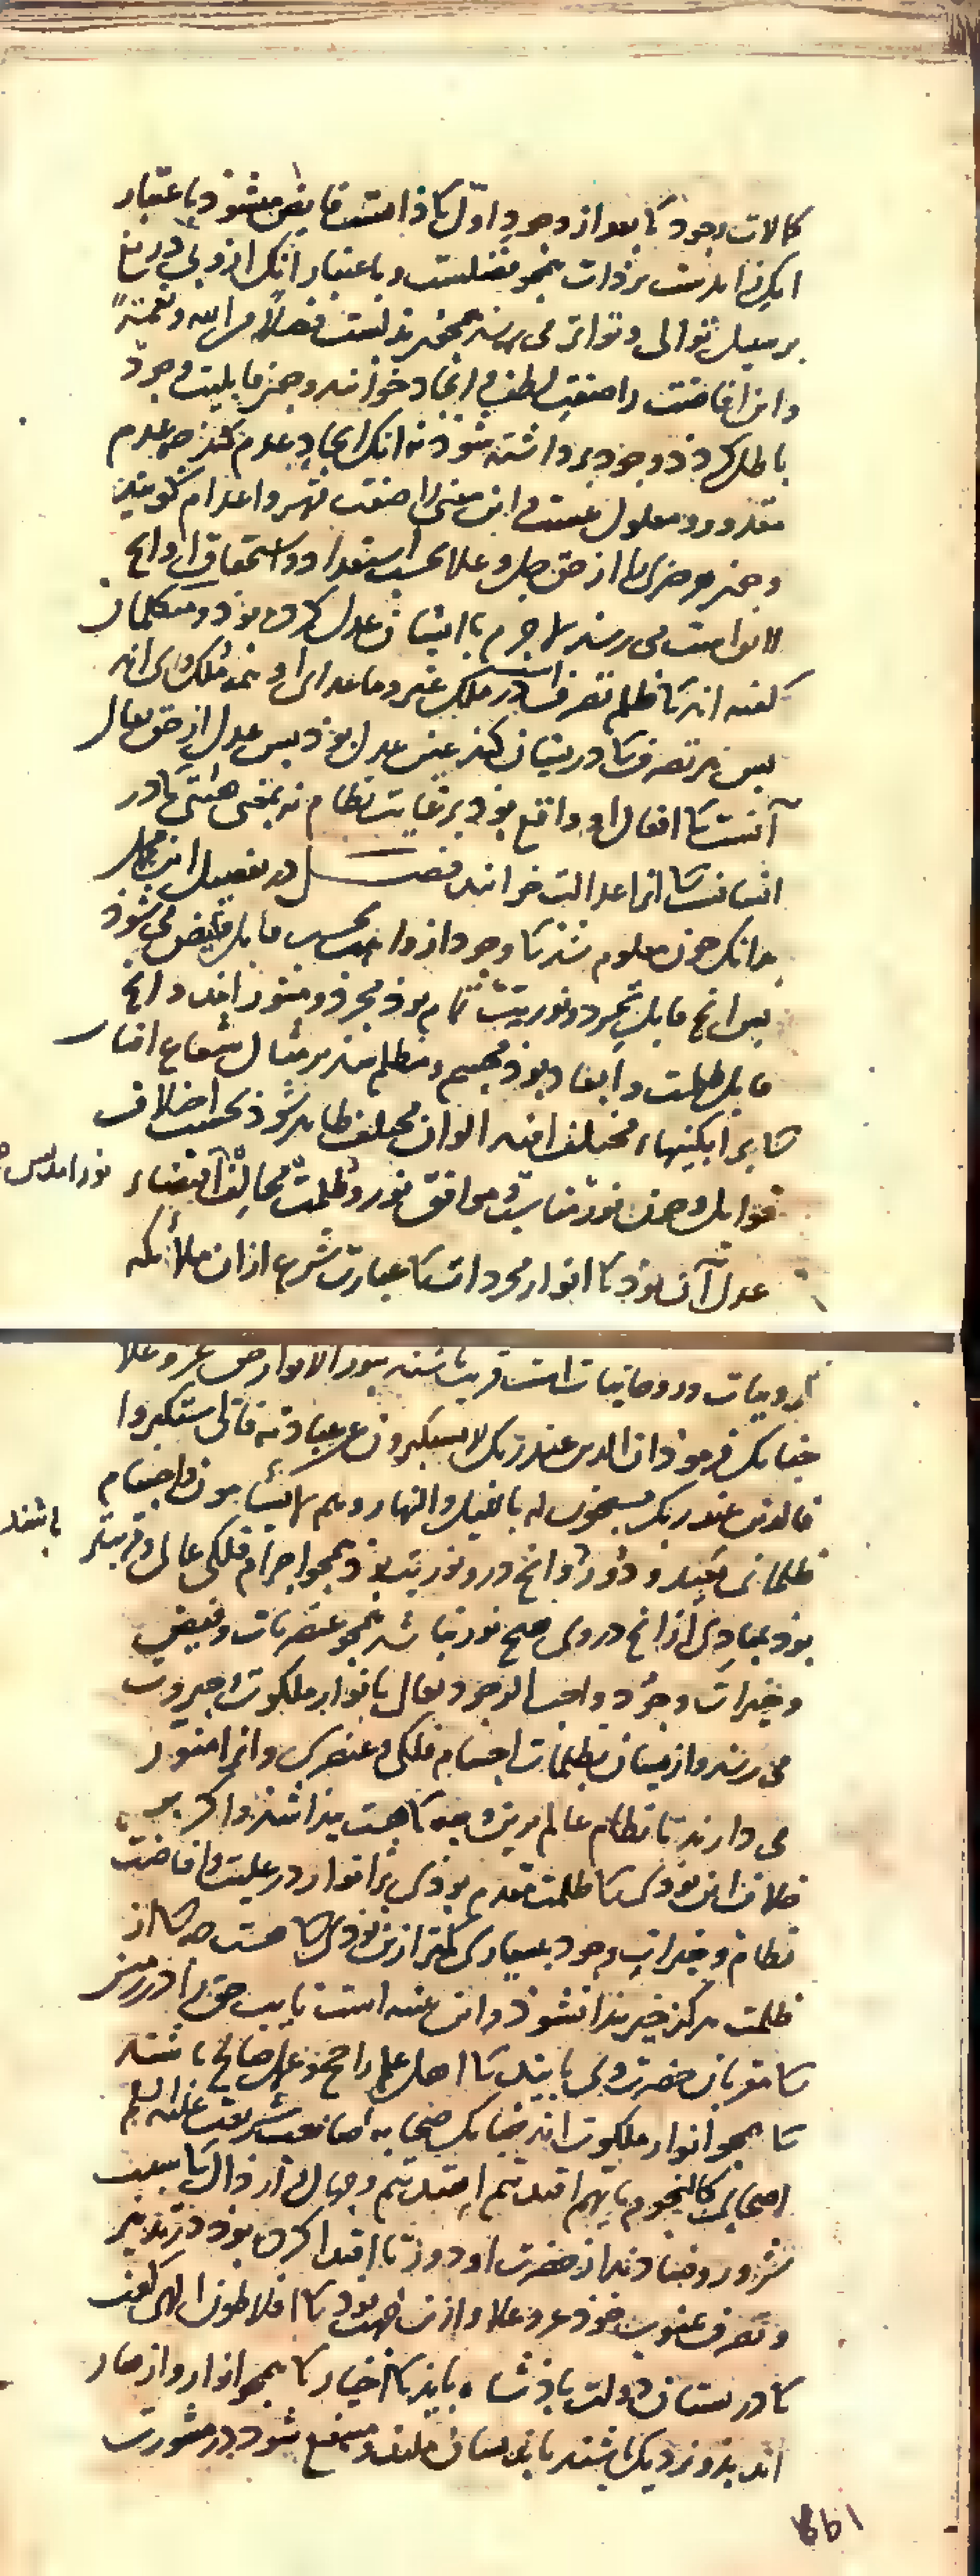 کمالات وجود کا بعد از وجود اول کا ذاتست فایض میشوذ باعتبار
انک زایدست بر ذات همجو فضلست و باعتبار انک از وی دریغ
بر سبیل توالی و تواتر می رسد همجو بذلست فضلاً من الله و نعمةً
و این افاضت را صفت لطف و ایجاد خوانند و جون قابلیت وجود
باطل کردذ وجود برداشته شوذ نه انک ایجاد عدم کند جه عدم
مقدور و معلول نیست و این معنی را صفت قهر و اعدام کویند
و جون هر جیزی را از حق جل و علا بحسب استعداد و استحقاق او انج
لایق اوست می رسد لاجرم با ایشان عدل کرده بوذ و متکلمان
کفته اند کا ظلم تصرفست در ملک غیر و ماعدای او همه ملک وی اند
بس هر تصرف کا دریشان کند عین عدل بوذ بس عدل از حق تعالی
آنست کا افعال او واقع بوذ بر غایت نظام نه بمعنی هیئتی کا در
انسانست کا انرا عدالت خوانند فصل در تفصیل این مجمل
بدانک جون معلوم شذ کا وجود از واجب بحسب قابل فایض می شوذ
بس انج قابل تجرد و نوریت تمام بوذ مجرد و منور افتد و انج
قابل ظلمت و ابعاد بوذ مجسم و مظلم بر مثال شعاع افتاب
کا بر ابکینهاء مختلف افتد الوان مختلف ظاهر شوذ بحسب اختلاف
قوابل و جون نور مناسب و موافق نور و ظلمت مخالف اقتضاء
عدل آن بوذ کا انوار مجردات کا عبارت شرع ازان ملائکه
کروبیان و روحانیات است قریب باشند بنور الانوار حق عز و علا
جنانک فرموذ ان الذین عند ربک لا یستکبرون عن عبادته فان استکبروا
فالذین عند ربک یسبحون له باللیل و النهار و هم لا یسئمون و اجسام
ظلمانی بعید و دور و انج درو نوریت بوذ همجو اجرام فلکی عالی و قریبتر
باشند
بوذ بمبادی از انج دروی هیج نور نباشد همجو عنصریات و فیض
و خیرات وجود واجب الوجود تعالی بانوار ملکوت و جبروت
می رسد و ازیشان بظلمات اجسام فلکی و عنصری و انرا منور
می دارند تا نظام عالم برین وجه کا هست بیدا شذ و اکر بر
خلاف این بوذی کا ظلمت مقدم بوذی بر انوار در علیت و افاضت
نظام و خیرات وجود بسیاری کمتر ازین بوذی کا هست جه از
ظلمت هرکز خیر بیدا نشوذ و این تنبیه است نایب حق را در زمین
کا مقربان حضرت وی بایند کا اهل علم راجح و عمل صالح باشند
کا همجو انوار ملکوت اند جنانک صحابه صاحب شریعت علیه السلم
اصحابی کالنجوم بایهم اقتدیتم اهتدیتم و جهال و ارذال کا سبب
شرور و فساد ند از حضرت او دور تا اقتدا کرده بوذ در تدبیر
و تصرف بمنوب خوذ عز و علا و ازین جهت بوذ کا افلاطون الهی کفت
کا در بستان دولت باذشاه بایذ کا اخیار کا همجو انوار و ازهار
اند بذو نزدیک باشند تا بذیشان ملتذ و متمتع شوذ در مشورت
۱۶۶۱